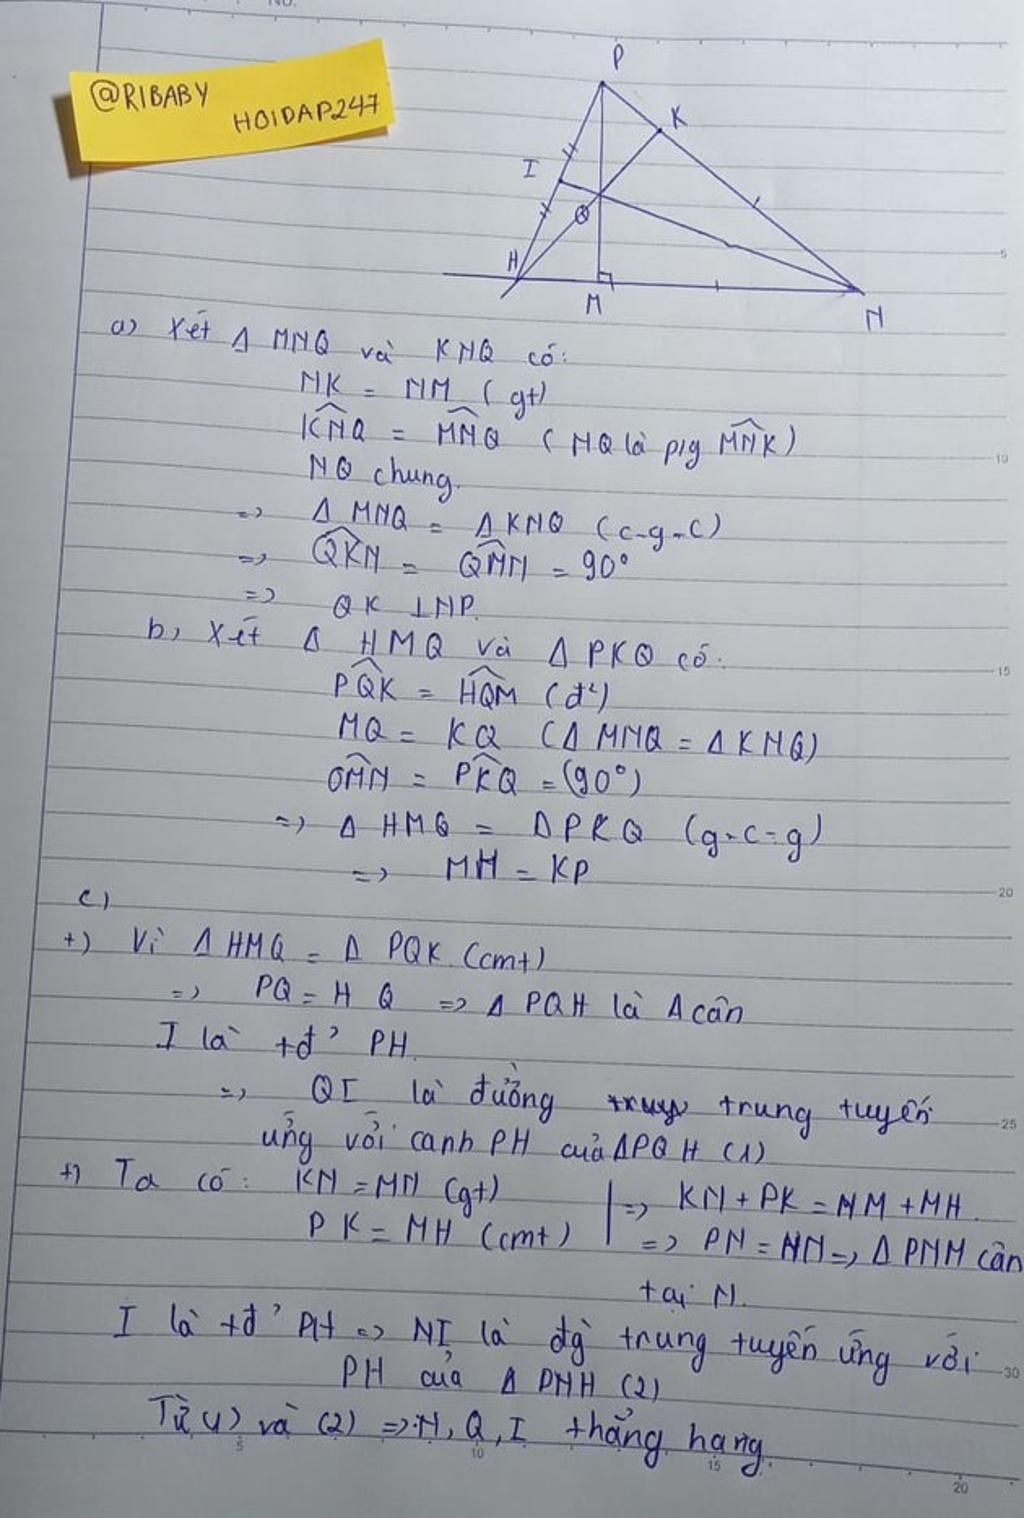 NO.
@RIBABY
HOIDAP247
P
K
I
Q
H
M
N
a) Xét Δ MNQ và KNQ có:
NK = NM (gt)
KNQ = MNQ (NQ là p/g MNK)
NQ chung.
=> Δ MNQ = Δ KNQ (c-g-c)
=> QKN = QMN = 90°
=> QK ⊥ NP.
b, Xét Δ HMQ và Δ PKQ có:
PQK = HQM (đ²)
MQ = KQ (Δ MNQ = Δ KNQ)
QMN = PKQ = (90°)
=> Δ HMQ = Δ PKQ (g-c-g)
=> MH = KP
c)
+) Vì Δ HMQ = Δ PQK (cmt)
=> PQ = HQ => Δ PQH là Δ cân
I là tđ' PH.
=> QI là đường trung tuyến
ứng với canh PH của ΔPQH (1)
+) Ta có: KN = MN (gt) | => KN + PK = NM + MH.
PK = MH (cmt) | => PN = HN => Δ PNH cân
tại N.
I là tđ' PH => NI là đg trung tuyến ứng với
PH của Δ PNH (2)
Từ (1) và (2) => N, Q, I thẳng hạng.
5
10
15
20
25
30
5
10
15
20